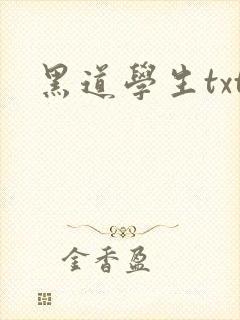 黑道學生txt
金香盈